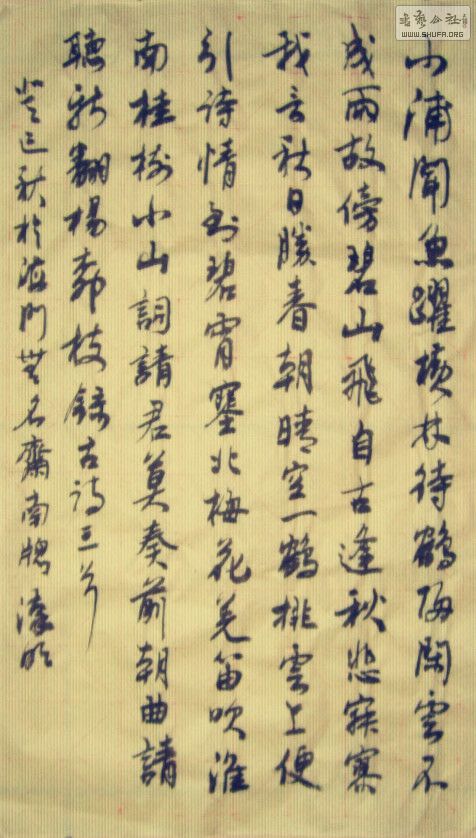 小浦聞魚躍橫林待鶴歸閑雲不
成雨故傍碧山飛自古逢秋悲寂寥
我言秋日勝春朝晴空一鶴排雲上便
引詩情到碧宵塞北梅花羌笛吹淮
南桂樹小山詞請君莫奏前朝曲請
聽新翻楊柳枝錄古詩三首
癸巳秋於海門無名齋南牕
书艺公社
WWW.SHUFA.ORG